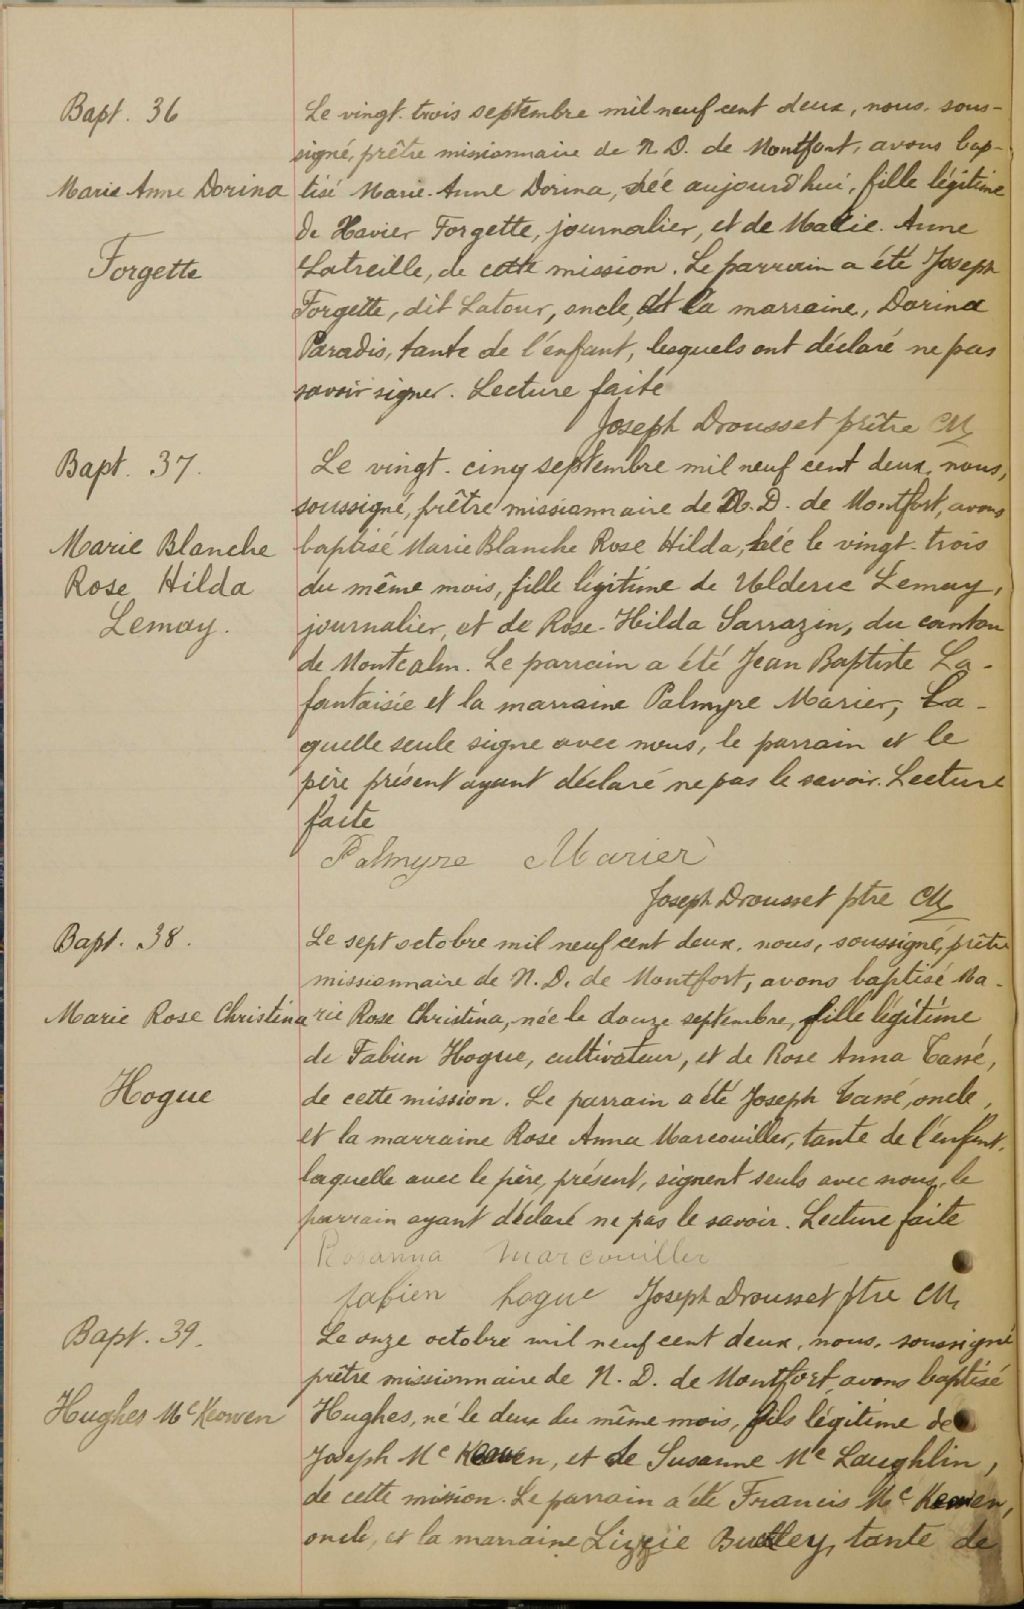 Bapt. 36
Marie Anne Dorina
Forgette
Le vingt-trois septembre mil neuf cent deux, nous, sous-
signé, prêtre missionnaire de N. D. de Montfort, avons bap-
tisé Marie-Anne Dorina, née aujourd'hui, fille légitime
de Xavier Forgette, journalier, et de Marie-Anne
Latreille, de cette mission. Le parrain a été Joseph
Forgette, dit Latour, oncle, et la marraine, Dorina
Paradis, tante de l'enfant, lesquels ont déclaré ne pas
savoir signer. Lecture faite
Joseph Drousset prêtre CM
Bapt. 37.
Marie Blanche
Rose Hilda
Lemay.
Le vingt-cinq septembre mil neuf cent deux, nous,
soussigné, prêtre missionnaire de N. D. de Montfort, avons
baptisé Marie Blanche Rose Hilda, née le vingt-trois
du même mois, fille légitime de Valderic Lemay,
journalier, et de Rose-Hilda Sarrazin, du canton
de Montcalm. Le parrain a été Jean Baptiste La-
fantaisie et la marraine Palmyre Marier, la-
quelle seule signe avec nous, le parrain et le
père présent ayant déclaré ne pas le savoir. Lecture
faite
Palmyre Marier
Joseph Drousset ptre CM
Bapt. 38.
Marie Rose Christina
Hogue
Le sept octobre mil neuf cent deux, nous, soussigné, prêtre
missionnaire de N. D. de Montfort, avons baptisé Ma-
rie Rose Christina, née le douze septembre, fille légitime
de Fabien Hogue, cultivateur, et de Rose Anna Tassé,
de cette mission. Le parrain a été Joseph Tassé, oncle,
et la marraine Rose Anna Marcouiller, tante de l'enfant,
laquelle avec le père, présent, signent seuls avec nous, le
parrain ayant déclaré ne pas le savoir. Lecture faite
Rosanna Marcouiller
fabien hogue Joseph Drousset ptre CM
Bapt. 39.
Hughes Mc Keowen
Le onze octobre mil neuf cent deux, nous, soussigné
prêtre missionnaire de N. D. de Montfort, avons baptisé
Hughes, né le deux du même mois, fils légitime de
Joseph Mc Keowen, et de Susanne Mc Laughlin,
de cette mission. Le parrain a été Francis Mc Keowen,
oncle, et la marraine Lizzie tante de